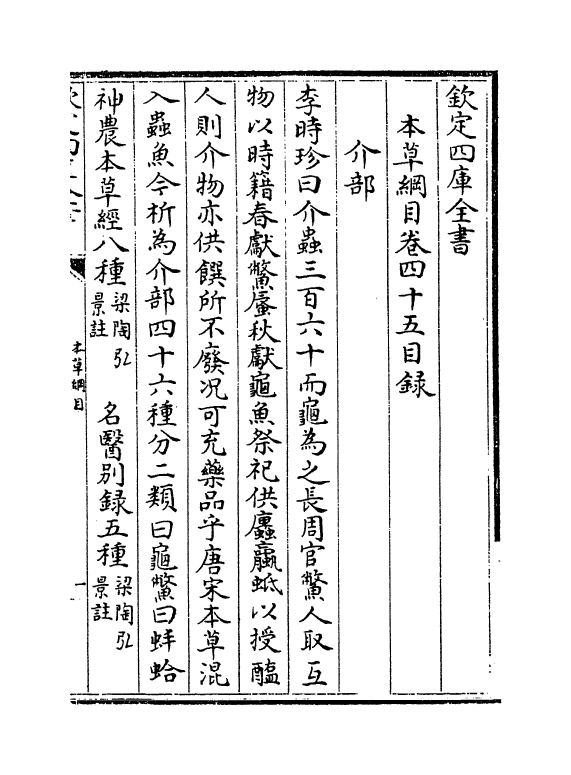 欽定四庫全書
本草綱目卷四十五目録
介部
李時珍曰介蟲三百六十而龜為之長周官鱉人取互
物以時籍春獻鱉蜃秋獻龜魚祭祀供蠯蠃蚳以授醢
人則介物亦供饌所不廢况可充藥品乎唐宋本草混
入蟲魚今析為介部四十六種分二類曰龜鱉曰蚌蛤
神農本草經八種 梁陶弘景註 名醫別録五種 梁陶弘景註
本草綱目 一